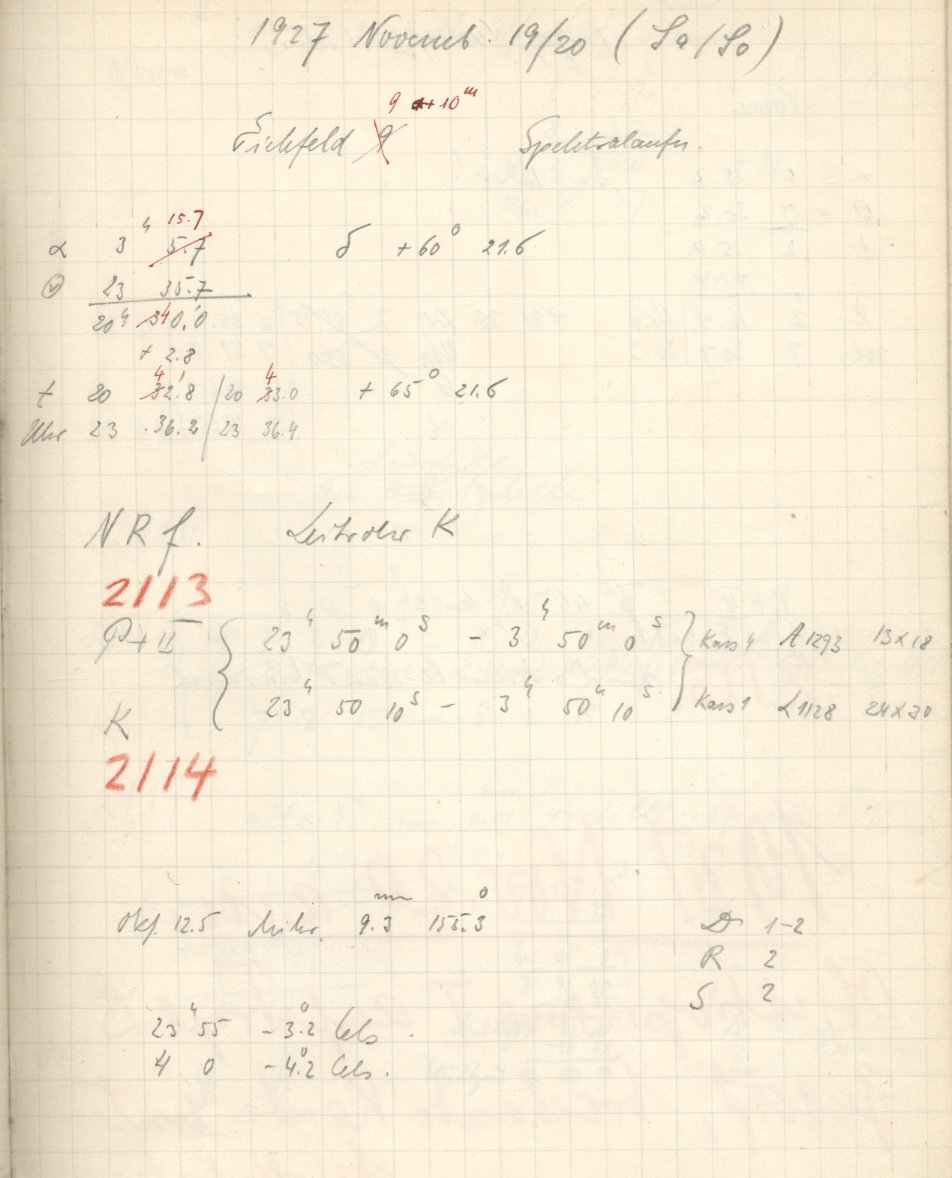 1927 Novemb. 19/20 (Sa/So)
9 + 10ᵐ
Eichfeld 9 Spektralaufn.
15.7
α 3ʰ 5.7 δ +60° 21.6
23 35.7
20ʰ 340.0
+ 2.8
4 4
t 20 32.8 / 20 33.0 + 65° 21.6
Uhr 23 36.2 / 23 36.4
N R f. Leitrohr K
2113
P + II { 23ʰ 50ᵐ 0ˢ - 3ʰ 50ᵐ 0ˢ } Kass 4 A 1293 13x18
K 23ʰ 50 10ˢ - 3ʰ 50ᵐ 10ˢ Kass 1 L 1128 24x30
2114
Okf. 12.5 Mikr. 9.3ᵐᵐ 155.3°
D 1-2
R 2
S 2
23ʰ 55 -3.2° Cels.
4 0 -4.2° Cels.